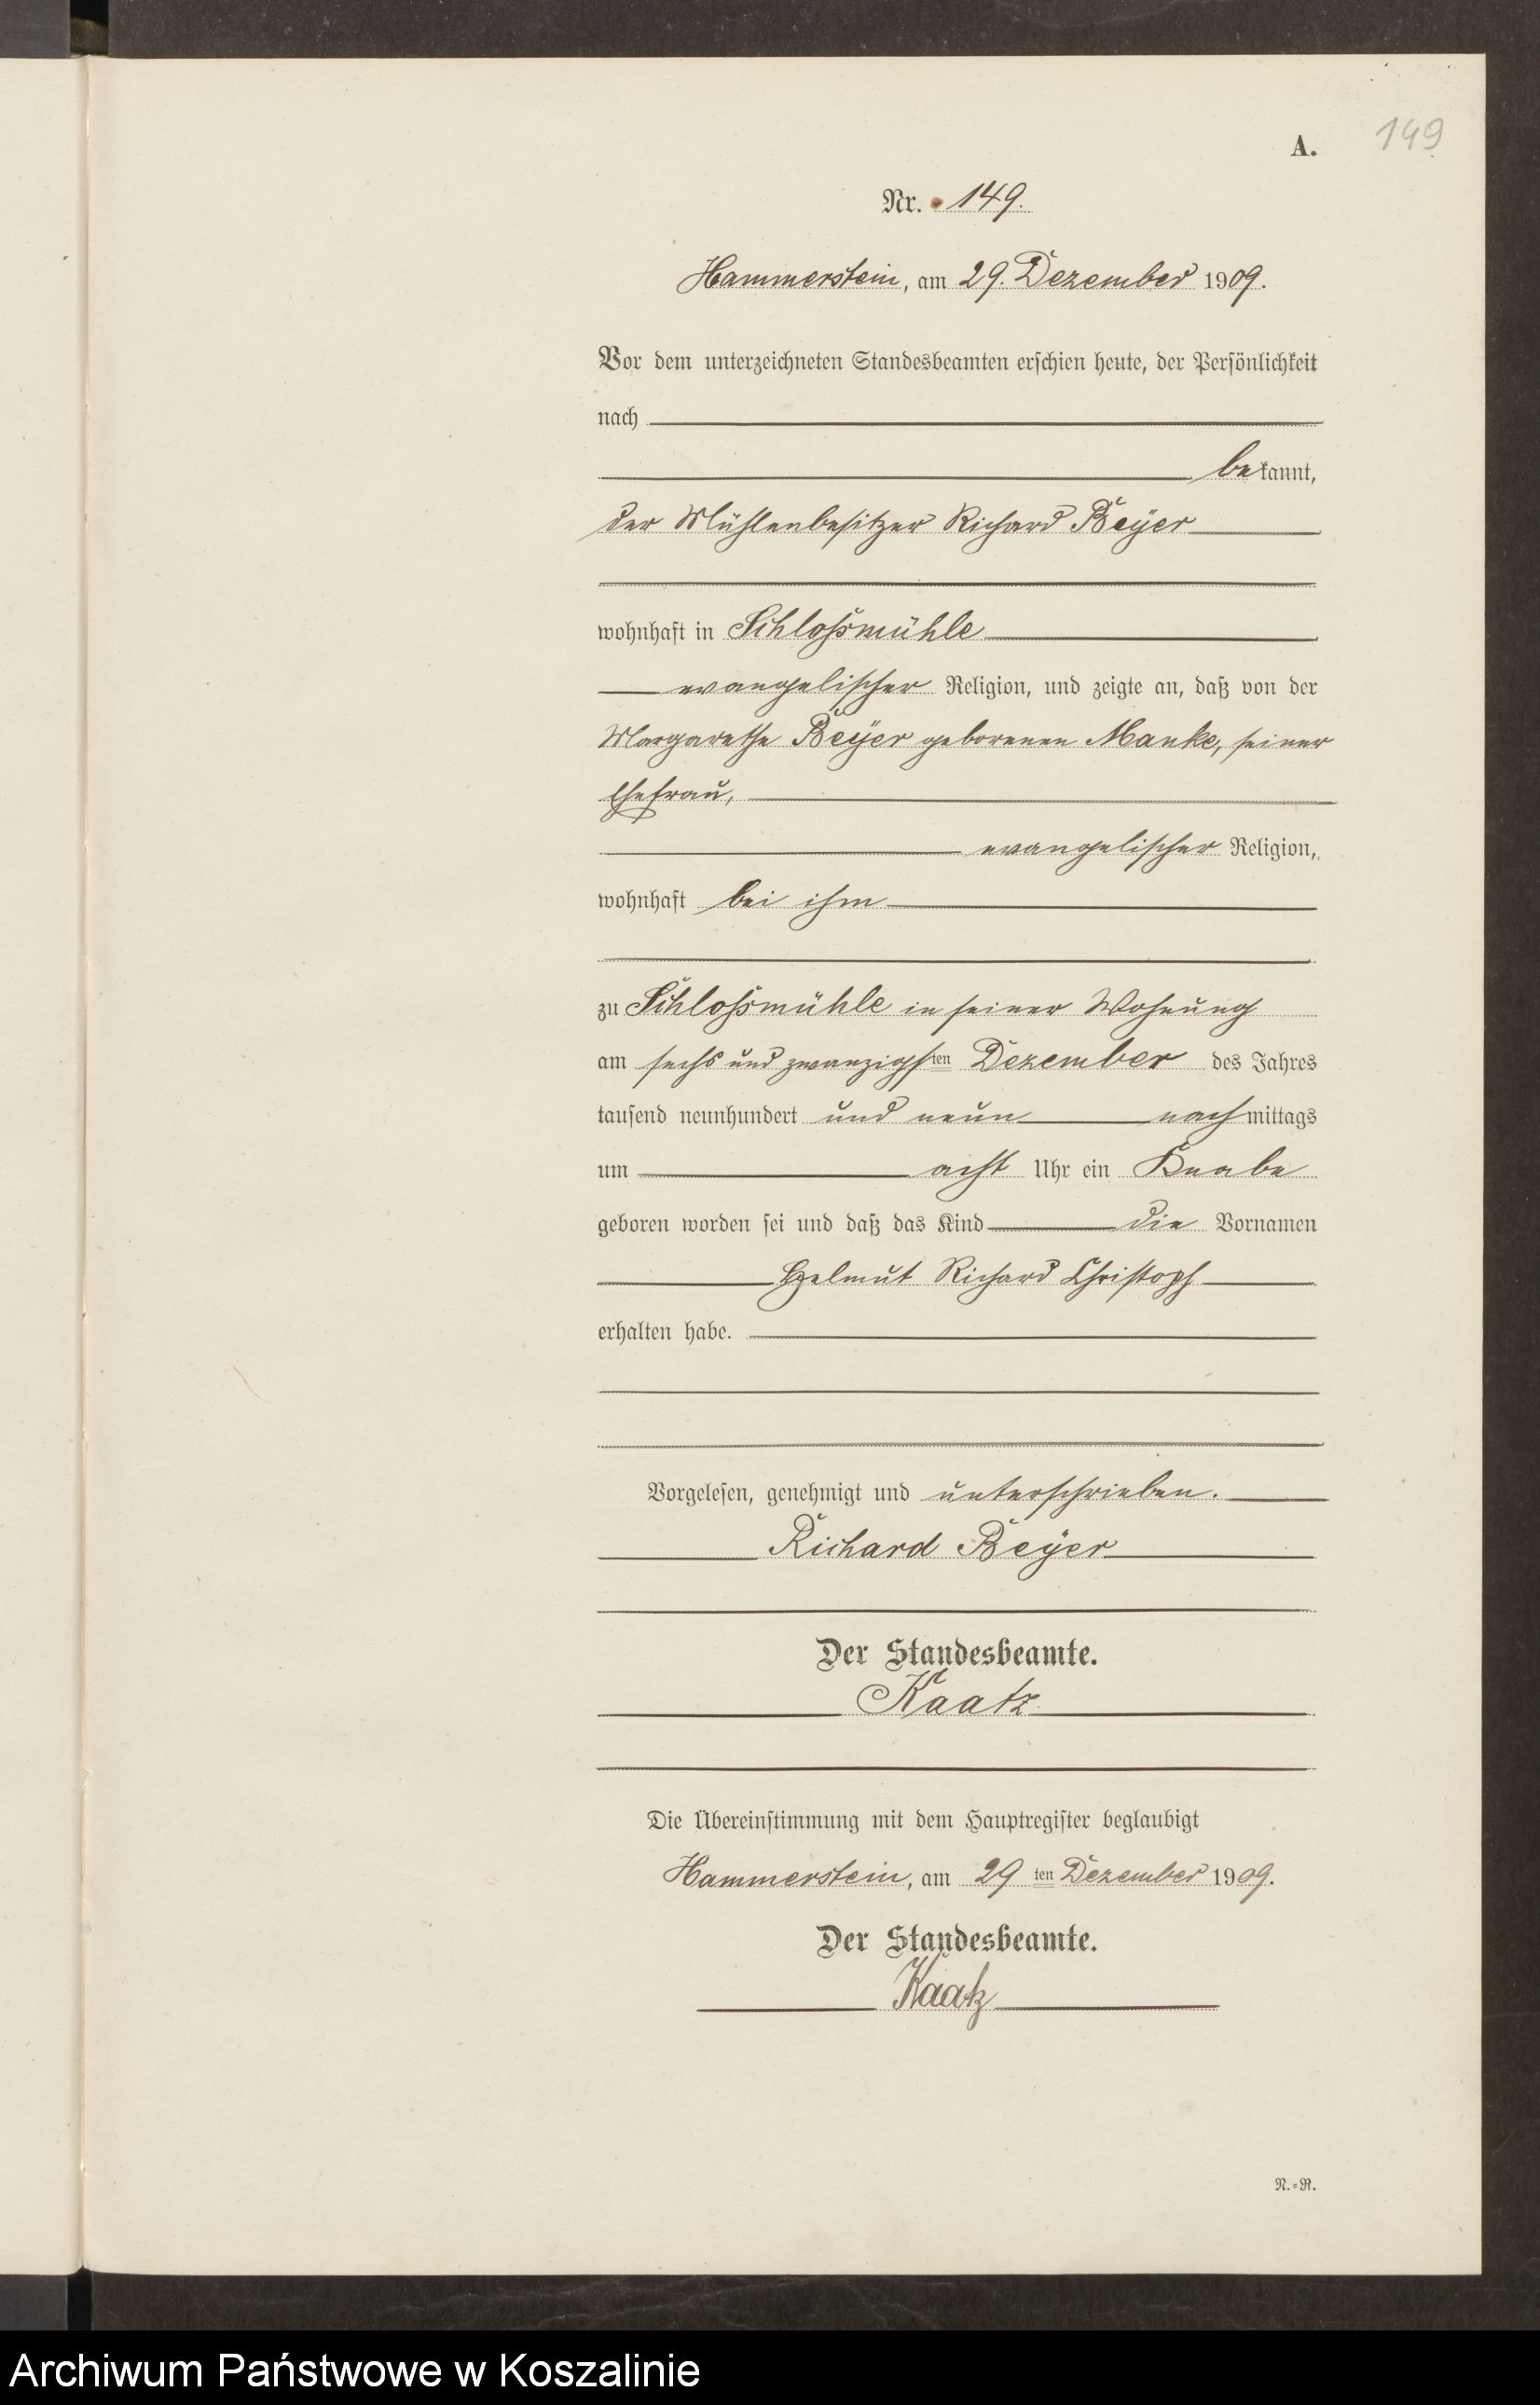 A.
149
Nr. 149.
Hammerstein, am 29. Dezember 1909.
Vor dem unterzeichneten Standesbeamten erschien heute, der Persönlichkeit
nach
bekannt,
der Mühlenbesitzer Richard Beyer
wohnhaft in Schloßmühle
evangelischer Religion, und zeigte an, daß von der
Margarethe Beyer geborenen Manke, seiner
Ehefrau,
evangelischer Religion,
wohnhaft bei ihm
zu Schloßmühle in seiner Wohnung
am sechs und zwanzigsten Dezember des Jahres
tausend neunhundert und neun nachmittags
um acht Uhr ein Knabe
geboren worden sei und daß das Kind die Vornamen
Helmut Richard Christoph
erhalten habe.
Vorgelesen, genehmigt und unterschrieben.
Richard Beyer
Der Standesbeamte.
Kaatz
Die Übereinstimmung mit dem Hauptregister beglaubigt
Hammerstein, am 29 ten Dezember 1909.
Der Standesbeamte.
Kaatz
N.=R.
Archiwum Państwowe w Koszalinie